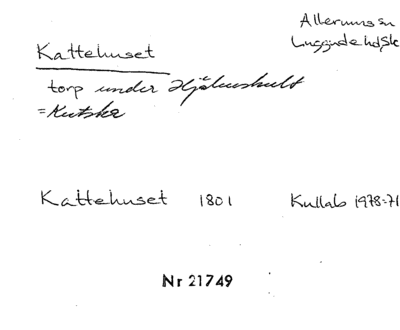 Allerums sn
Luggude hd, Sk
Kattehuset
torp under Hjälmshult
= Kutska
Kattehuset 1801 Kullab 1978:71
Nr 21749